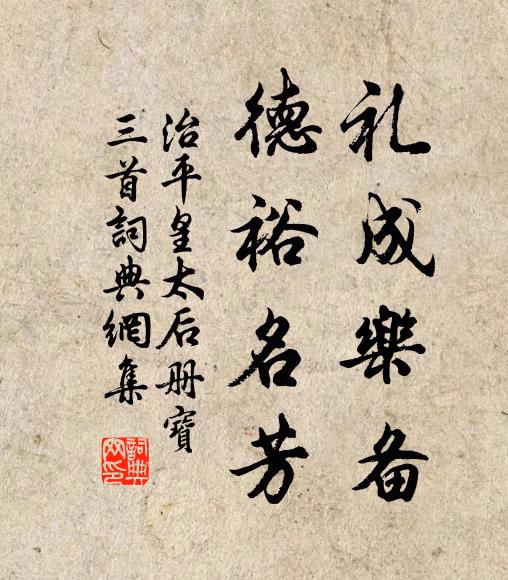 礼成樂备
德裕名芳
治平皇太后册寶
三首詞典網集
詞典网印